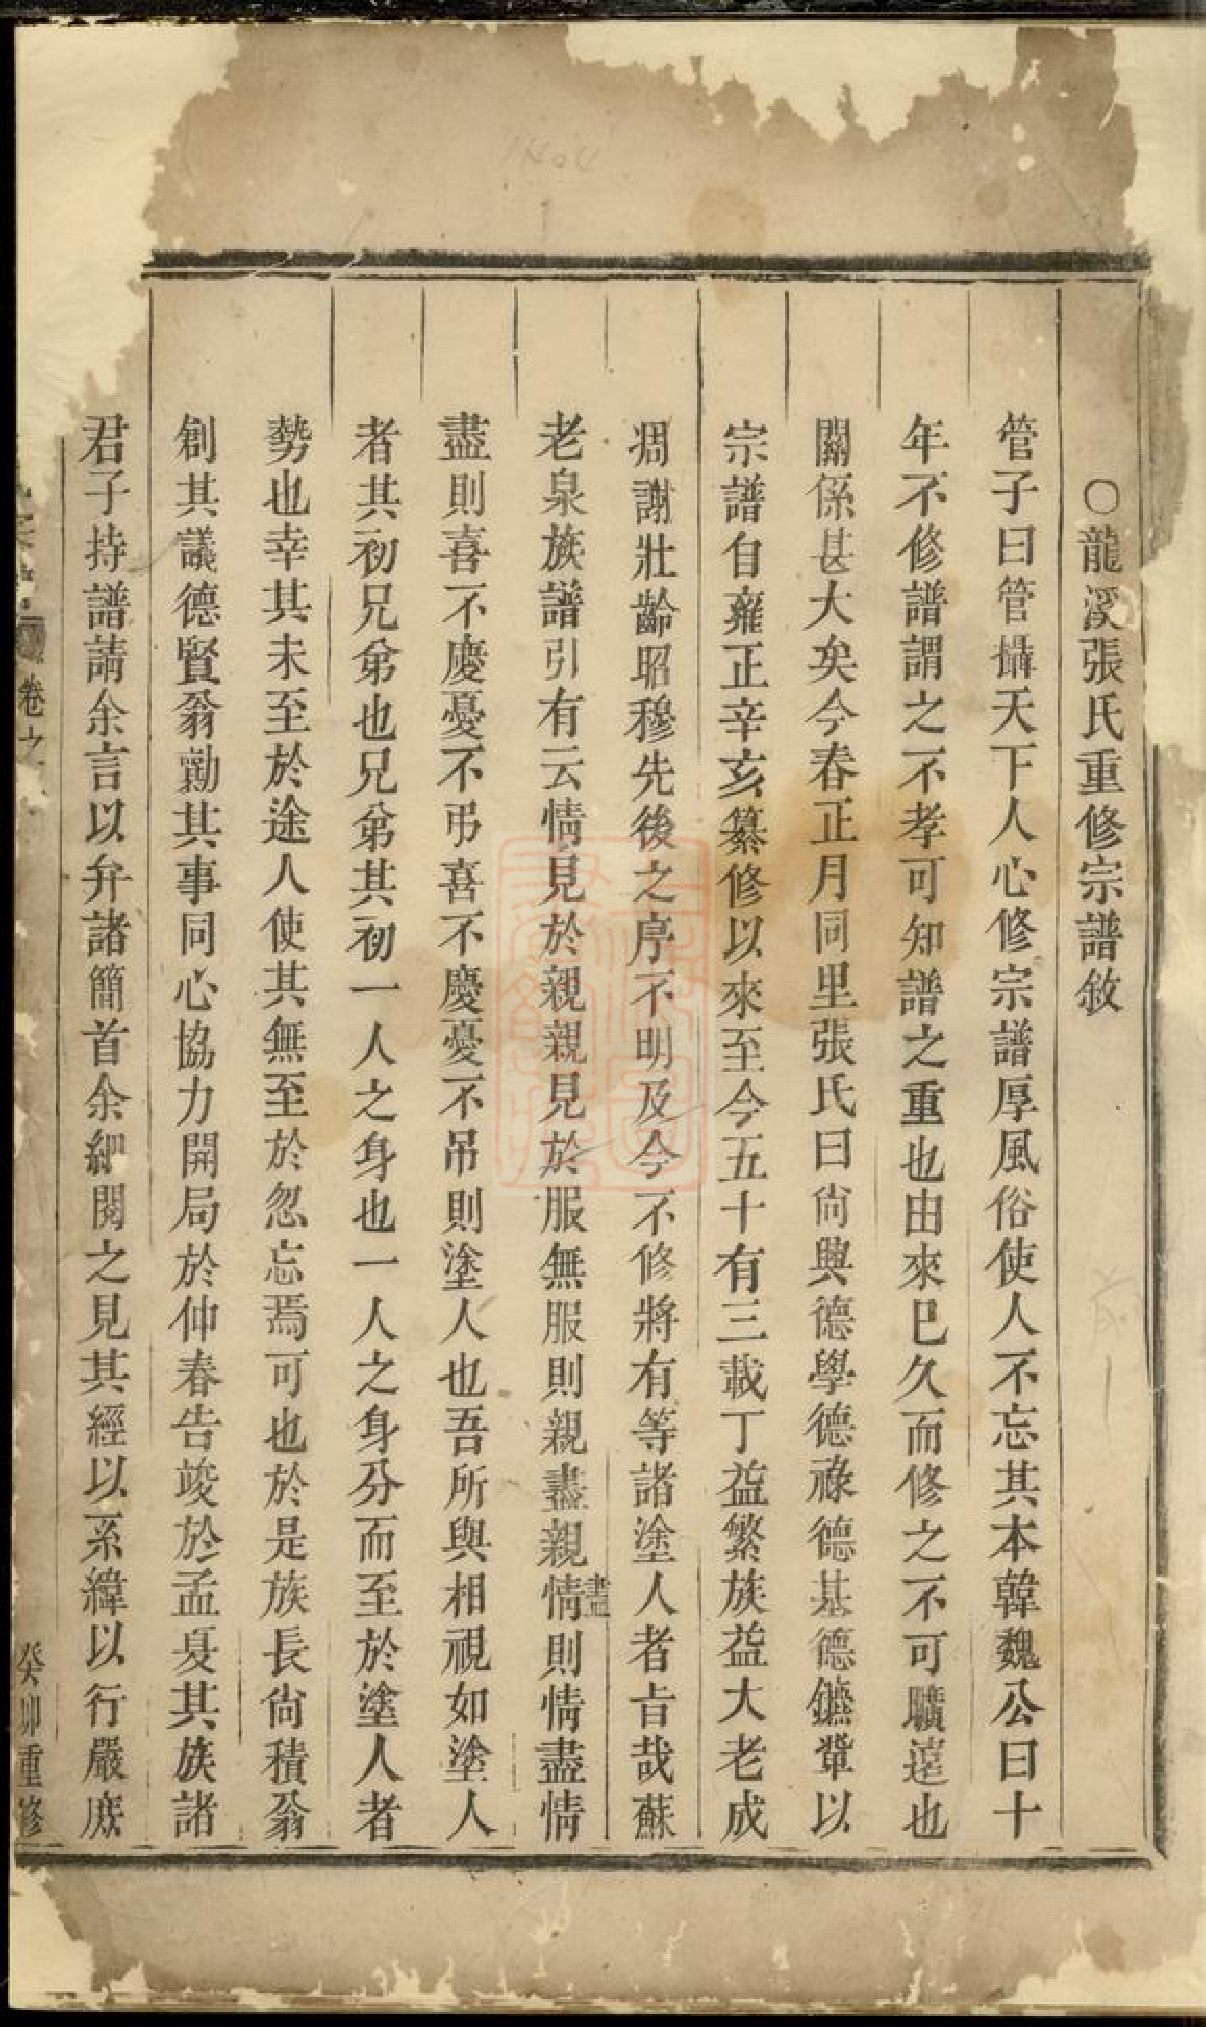 ○龍溪張氏重修宗譜敘
管子曰管攝天下人心修宗譜厚風俗使人不忘其本韓魏公曰十
年不修譜謂之不孝可知譜之重也由來巳久而修之不可曠遠也
關係甚大矣今春正月同里張氏曰尙興德學德祿德基德鑣軰以
宗譜自雍正辛亥纂修以來至今五十有三載丁益繁族益大老成
凋謝壯齡昭穆先後之序不明及今不修將有等諸塗人者旨哉蘇
老泉族譜引有云情見於親親見於服無服則親盡親盡情則情盡情
盡則喜不慶憂不弔喜不慶憂不吊則塗人也吾所與相視如塗人
者其初兄弟也兄弟其初一人之身也一人之身分而至於塗人者
勢也幸其未至於途人使其無至於忽忘焉可也於是族長尙積翁
創其議德賢翁勷其事同心協力開局於仲春告竣於孟夏其族諸
君子持譜請余言以弁諸簡首余細閱之見其經以系緯以行嚴庶
卷之
癸卯重修